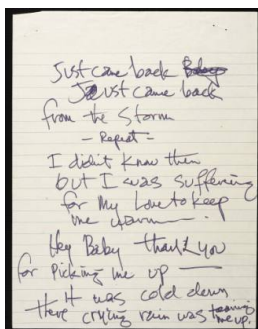 Just came back Baby
Just came back
from the Storm
- Repeat -
I didit know then
but I was suffering
for My Love to keep
me warm.
Hey Baby thank you
for Picking me up —
it was cold down
there crying rain was tearing
me up.